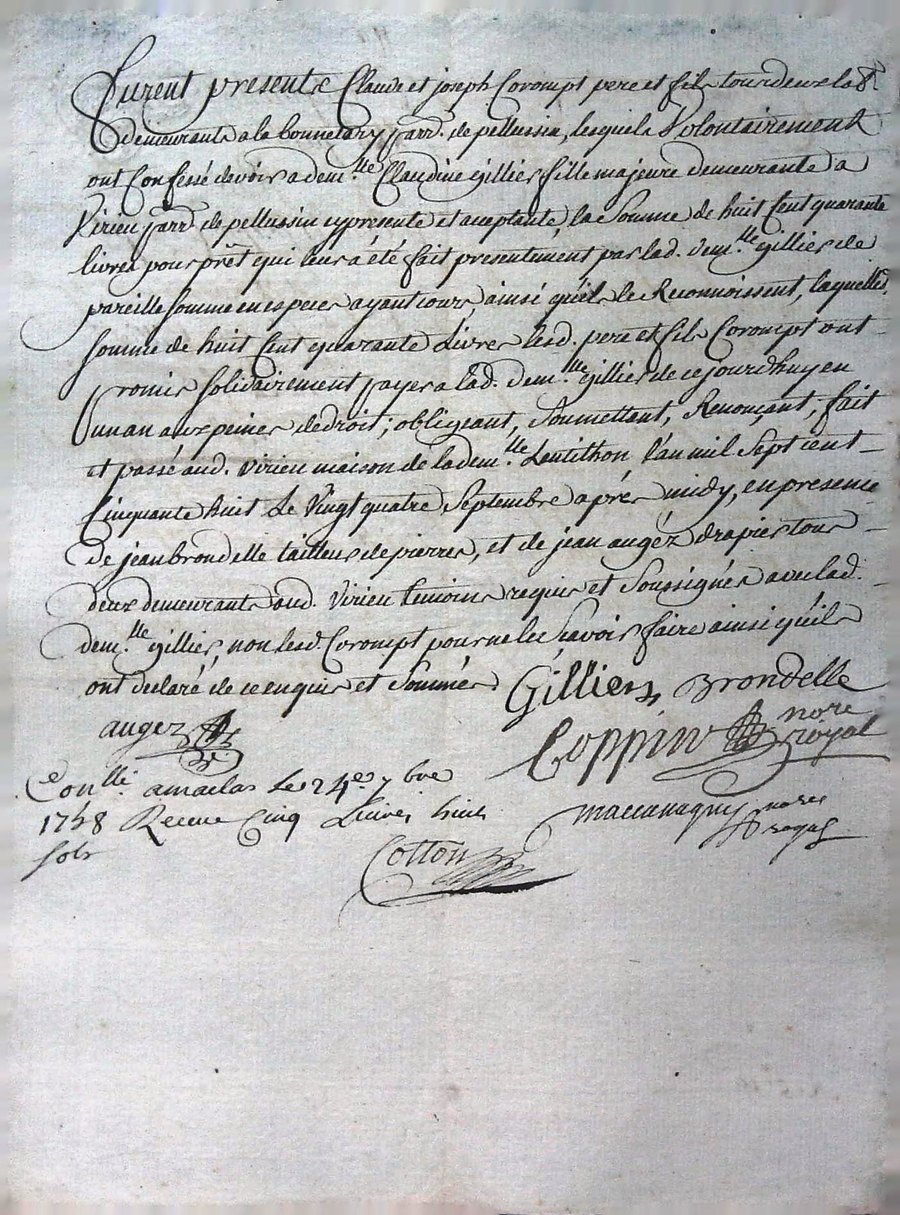 furent presents Claude et joseph Corompt pere et fils tous deux lab.rs
demeurants a la bonnetary parr. de pellussin, lesquels Volontairement
ont Confessé devoir a dem.lle Claudine gillier fille majeure demeurante a
Virieu parr. de pellussin cy presente et acceptante, la Somme de huit Cent quarante
livres pour prêt qui leur á été fait presentement par lad. dem.lle gillier de
pareille somme en especes ayant cours, ainsi qu'ils le Reconnoissent, laquelle
somme de huit Cent quarante Livres lesd. pere et fils Corompt ont
promis solidairement payer a lad. dem.lle gillier de ce jourdhuy en
un an aux peines de droit; obligeant, Soumettant, Renonçant, fait
et passé aud. virieu maison de la dem.lle Lentithon, l'an mil Sept cent
Cinquante huit Le Vingt quatre Septembre aprés midy, en presence
de jean brondelle tailleur de pierres, et de jean augéz drapier tous
deux demeurants aud. Virieu temoins requis et Soussignés avec lad.
dem.lle gillier, non lesd. Corompt pour ne les Sçavoir faire ainsi qu'ils
ont declaré de ce enquis et Sommés
Gillier, Brondelle
augez
Coppin nore
royal
Conllé a maclas Le 24e 7bre
1758 Receu Cinq Livres huit
sols
nores
royal
Cotton